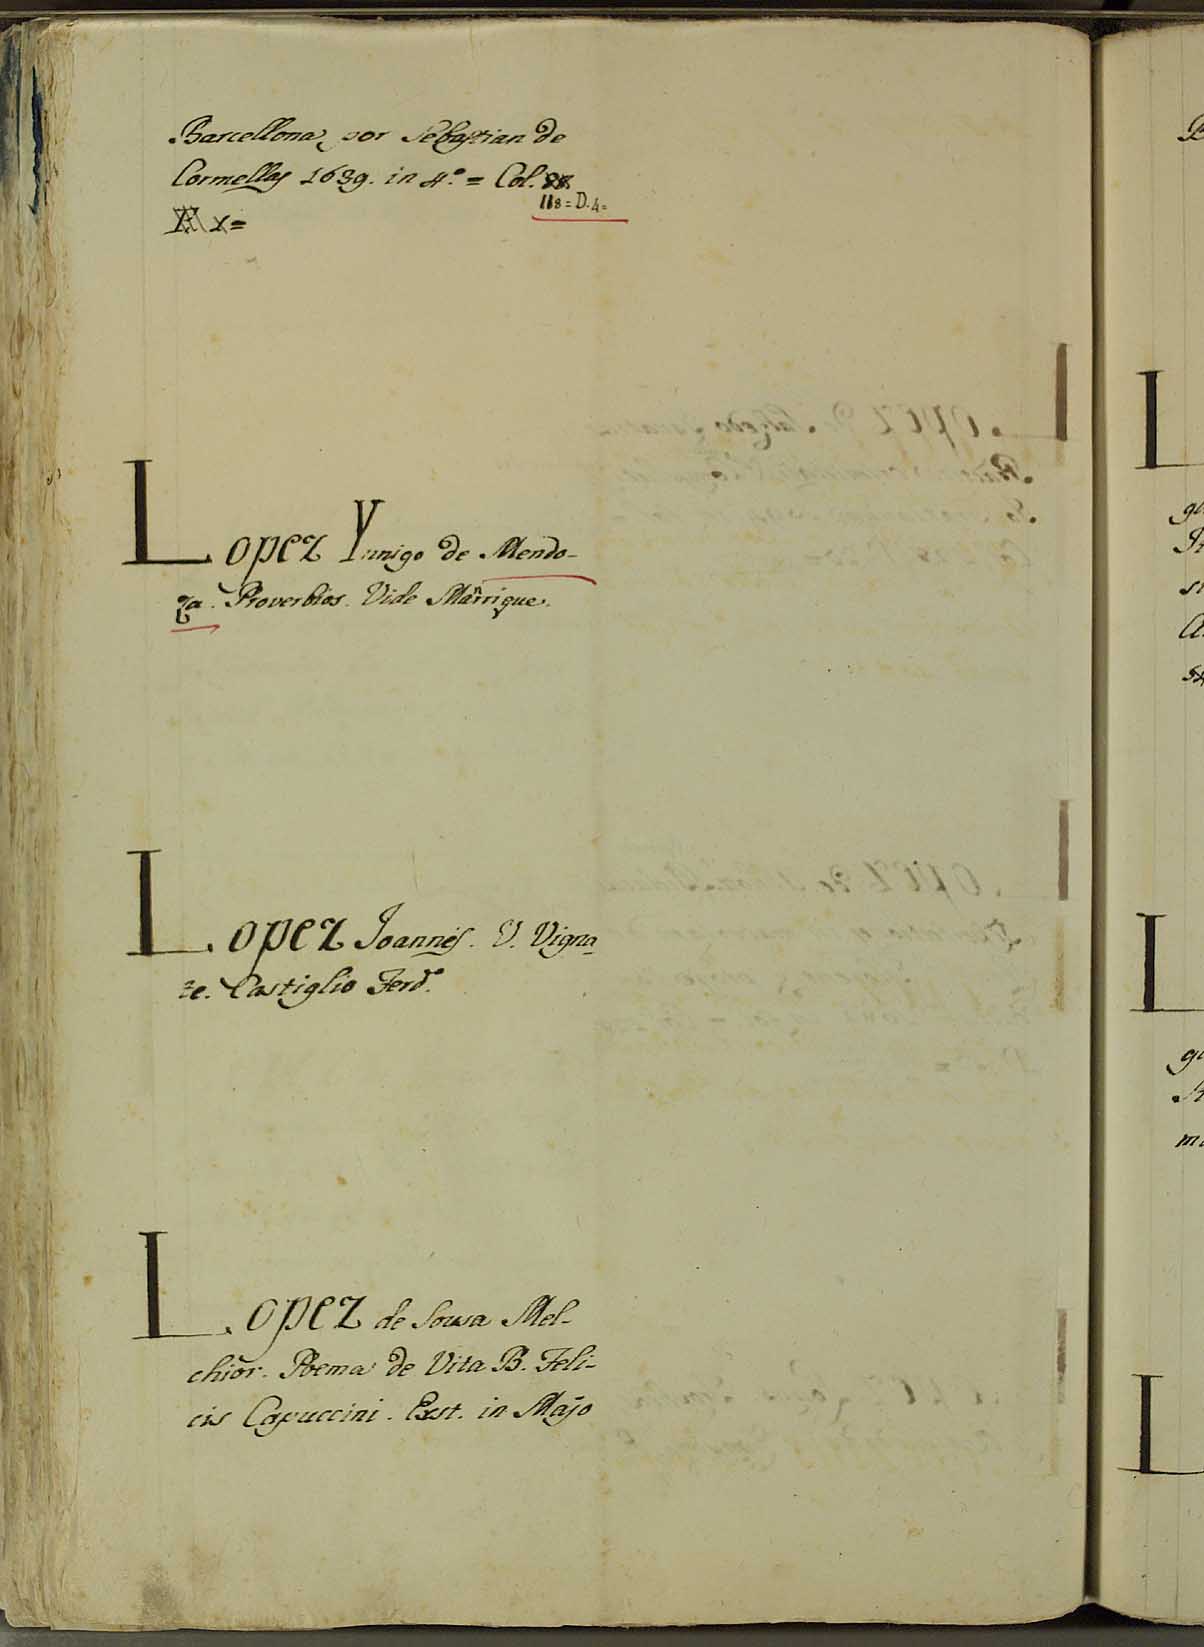 Barcellona, por Sebastian de
Cormellas 1639. in 4.º = Col. 88
118 = D. 4 =
X =
Lopez Ynnigo de Mendo-
za. Proverbios. Vide Manrique.
Lopez Joannes. V. Vigna
te. Castiglio Ferd.º
Lopez de Sousa Mel-
chior. Poema de Vita B. Feli-
cis Capuccini. Exst. in Majo